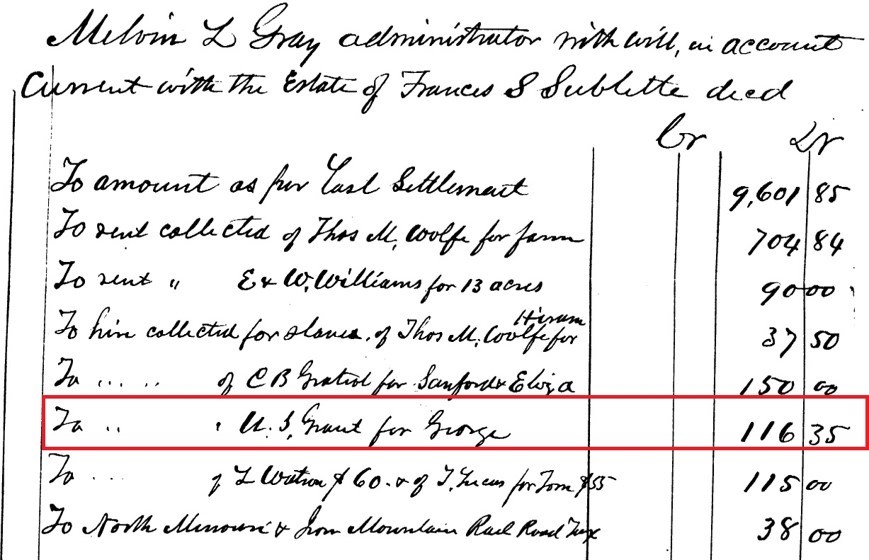 Melvin L Gray administrator with will, in account
Current with the Estate of Frances S Sublette decd
Cr Dr
To amount as per Last Settlement 9,601 85
To rent collected of Thos M, Wolfe for farm 704 84
To rent " E & W. Williams for 13 acres 90 00
To hire collected for slaves. of Thos M. Woolfe for Hiram 37 50
To " " of C B Gratiot for Sanford & Eliza 150 00
To " " U. S. Grant for George 116 35
To " of L Watson $60. & of J. Lucas for Tom $55 115 00
To North Missouri & Iron Mountain Rail Road Tax 38 00